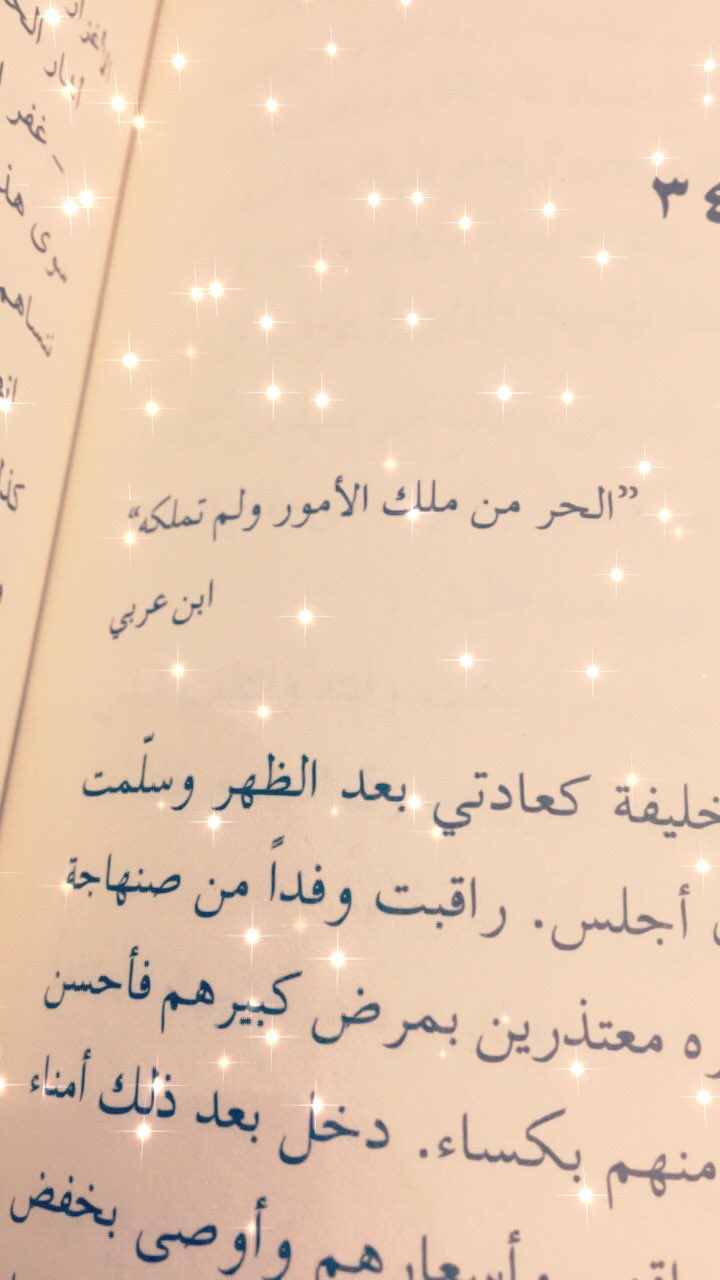 ٣٤
”الحر من ملك الأمور ولم تملكه“
ابن عربي
كعادتي بعد الظهر وسلّمت
أجلس. راقبت وفداً من صنهاجة
معتذرين بمرض كبيرهم فأحسن
منهم بكساء. دخل بعد ذلك أمناء
وأسعارهم وأوصى بخفض